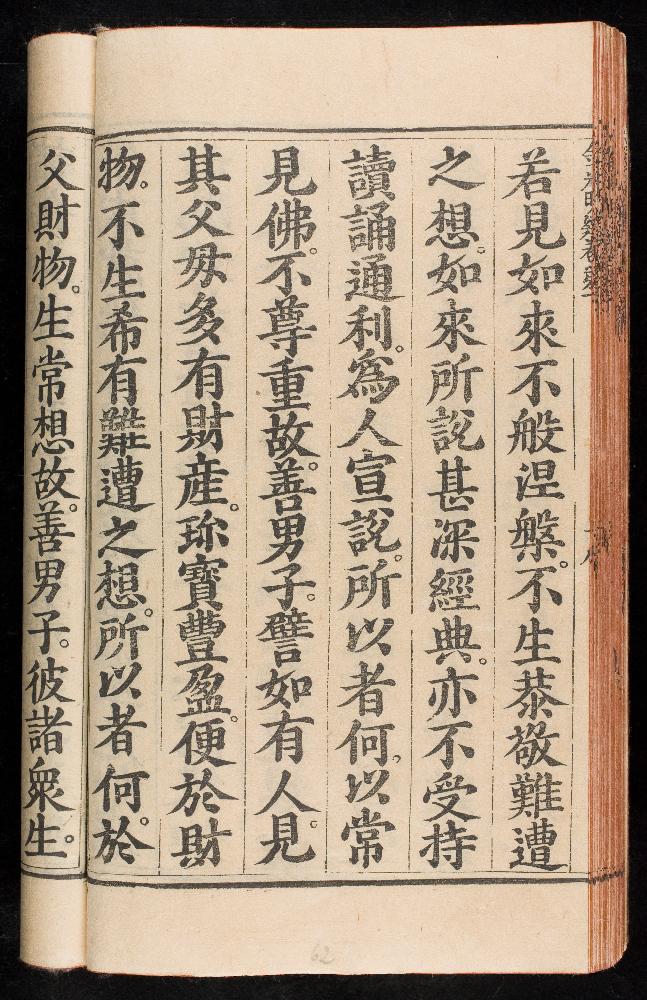 若見如來不般涅槃。不生恭敬難遭
之想。如來所說甚深經典。亦不受持
讀誦通利。為人宣說。所以者何。以常
見佛。不尊重故。善男子。譬如有人見
其父母多有財產。珎寶豐盈。便於財
物。不生希有難遭之想。所以者何。於
父財物。生常想故。善男子。彼諸衆生。
62